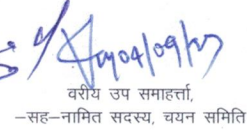 04/09/23
वरीय उप समाहर्त्ता,
-सह-नामित सदस्य, चयन समिति